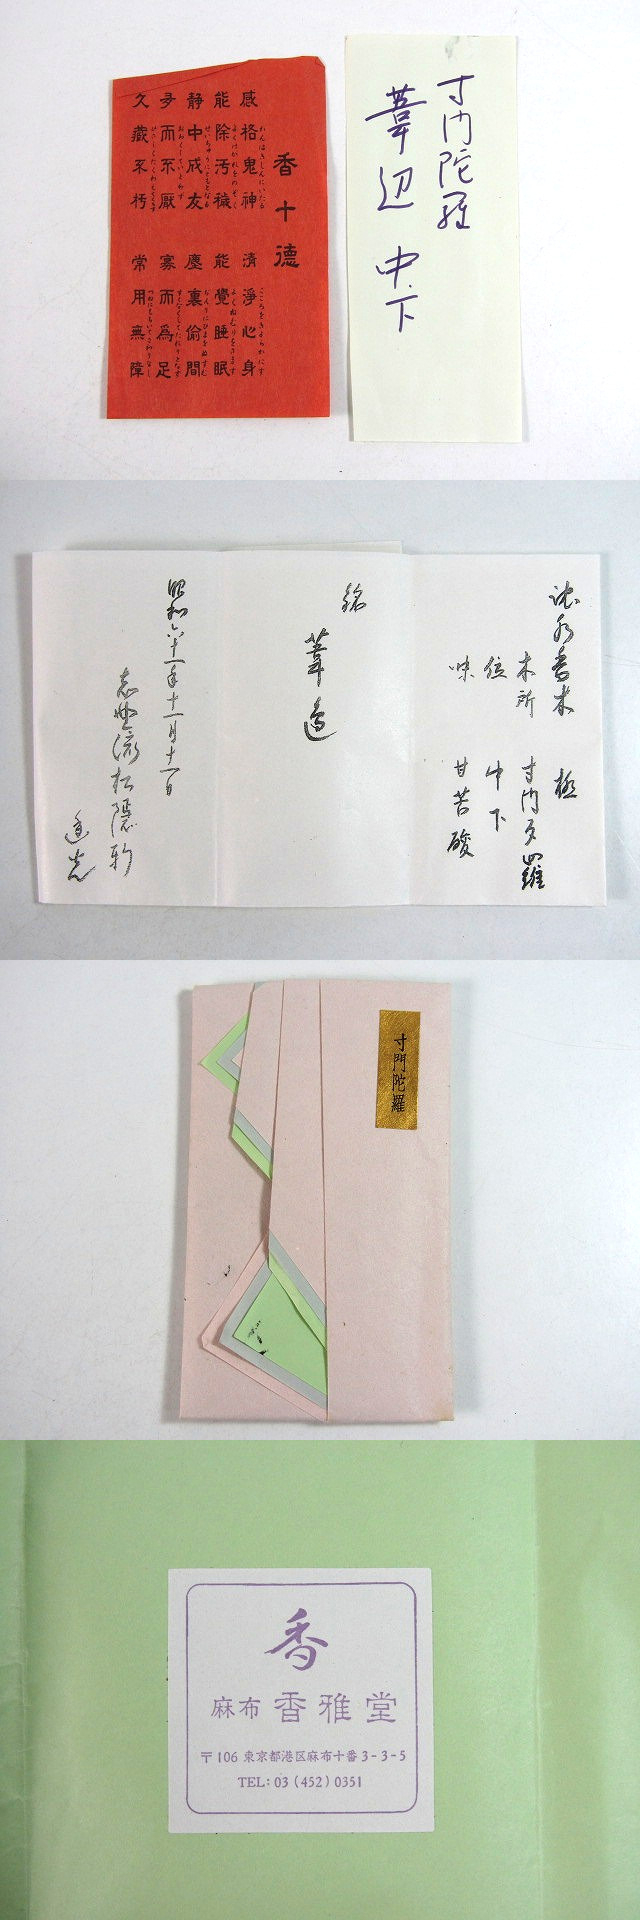 香十徳
感格鬼神 清淨心身
能除汚穢 能覺睡眠
静中成友 塵裏偷閒
多而不厭 寡而為足
久藏不朽 常用無障
寸門陀羅
葦辺 中、下
沈水香木 極
木所 寸門多羅
位 中下
味 甘苦酸
銘
葦邊
昭和六十一年十一月十一日
志野流松隠軒
寸門陀羅
香
麻布 香雅堂
〒106 東京都港区麻布十番3-3-5
TEL: 03 (452) 0351